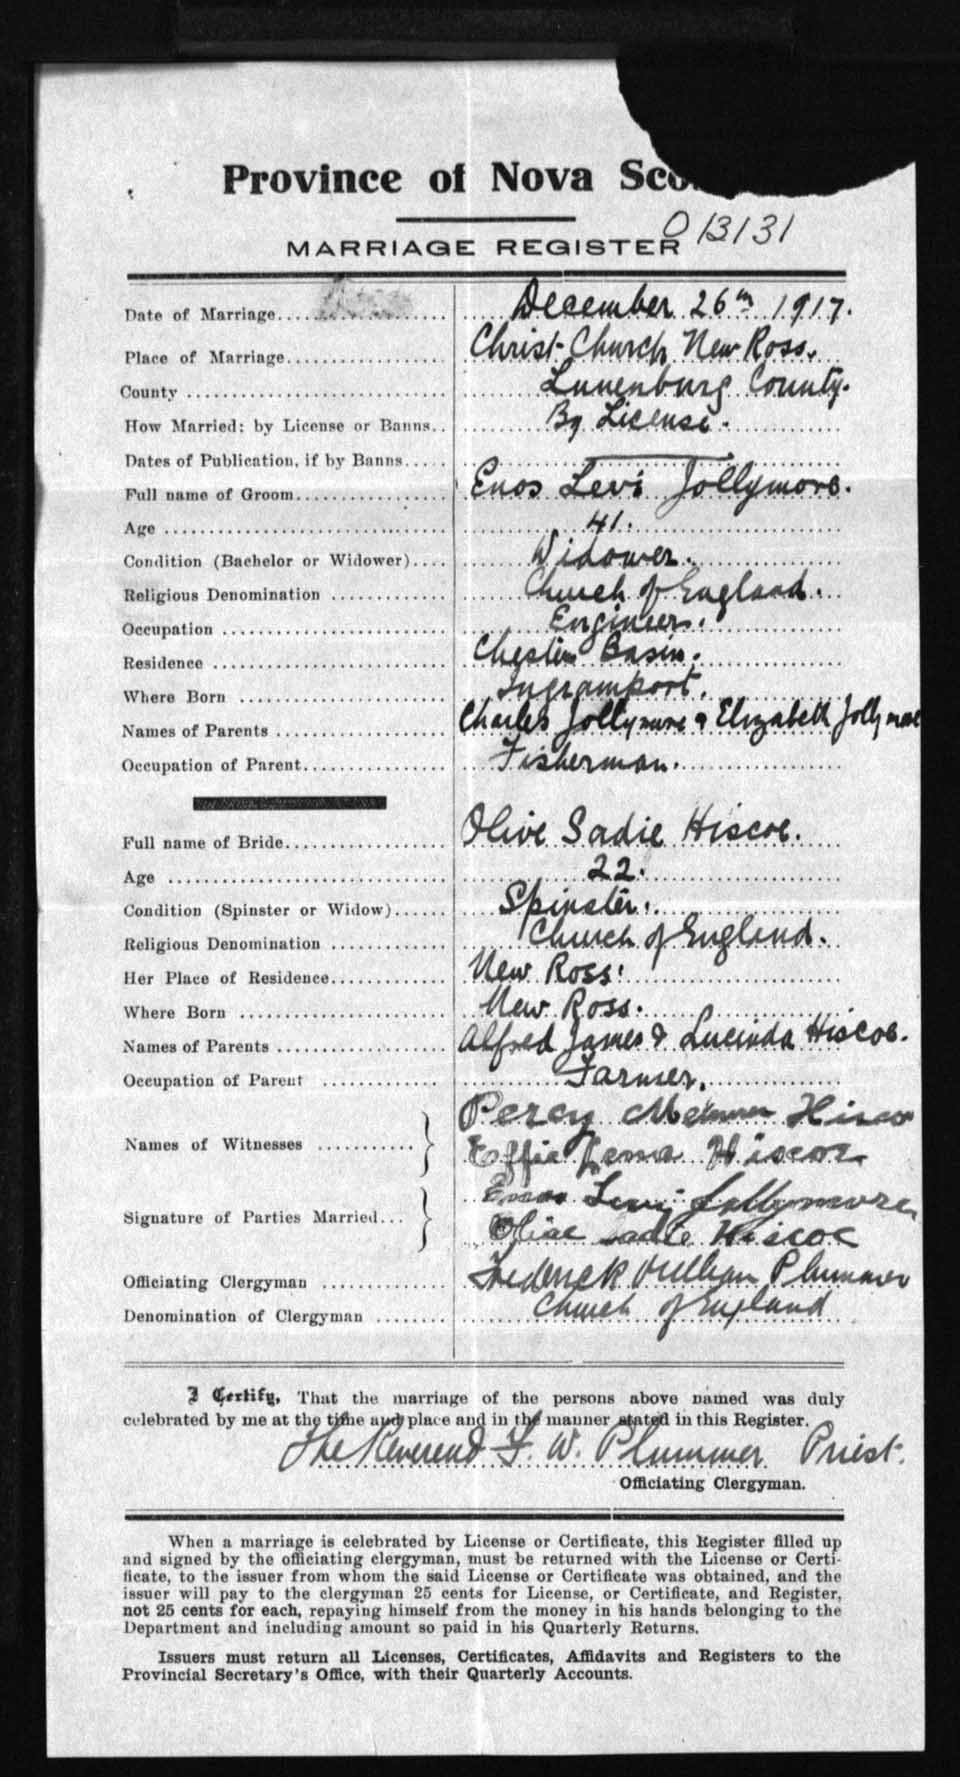 Province of Nova
013131
MARRIAGE REGISTER
Date of Marriage.................. December 26th 1917.
Place of Marriage.................. Christ Church New Ross.
County .................. Lunenburg County.
How Married: by License or Banns.. By License.
Dates of Publication, if by Banns..... ———
Full name of Groom.................. Enos Levi Jollymore.
Age .................. 41.
Condition (Bachelor or Widower).... Widower.
Religious Denomination .................. Church of England.
Occupation .................. Engineer.
Residence .................. Chester Basin.
Where Born .................. Ingramport.
Names of Parents .................. Charles Jollymore & Elizabeth Jollymore
Occupation of Parent.................. Fisherman.
Full name of Bride.................. Olive Sadie Hiscoe.
Age .................. 22.
Condition (Spinster or Widow)...... Spinster.
Religious Denomination .................. Church of England.
Her Place of Residence.................. New Ross.
Where Born .................. New Ross.
Names of Parents .................. Alfred James & Lucinda Hiscoe.
Occupation of Parent .................. Farmer.
Percy Hiscoe
Names of Witnesses ...........
Effie Lena Hiscoe
Enos Levi Jollymore
Signature of Parties Married...
Olive Sadie Hiscoe
Officiating Clergyman .............. Frederick William Plummer
Denomination of Clergyman ........ Church of England
I Certify, That the marriage of the persons above named was duly
celebrated by me at the time and place and in the manner stated in this Register.
The Reverend F. W. Plummer Priest.
Officiating Clergyman.
When a marriage is celebrated by License or Certificate, this Register filled up
and signed by the officiating clergyman, must be returned with the License or Certi-
ficate, to the issuer from whom the said License or Certificate was obtained, and the
issuer will pay to the clergyman 25 cents for License, or Certificate, and Register,
not 25 cents for each, repaying himself from the money in his hands belonging to the
Department and including amount so paid in his Quarterly Returns.
Issuers must return all Licenses, Certificates, Affidavits and Registers to the
Provincial Secretary's Office, with their Quarterly Accounts.